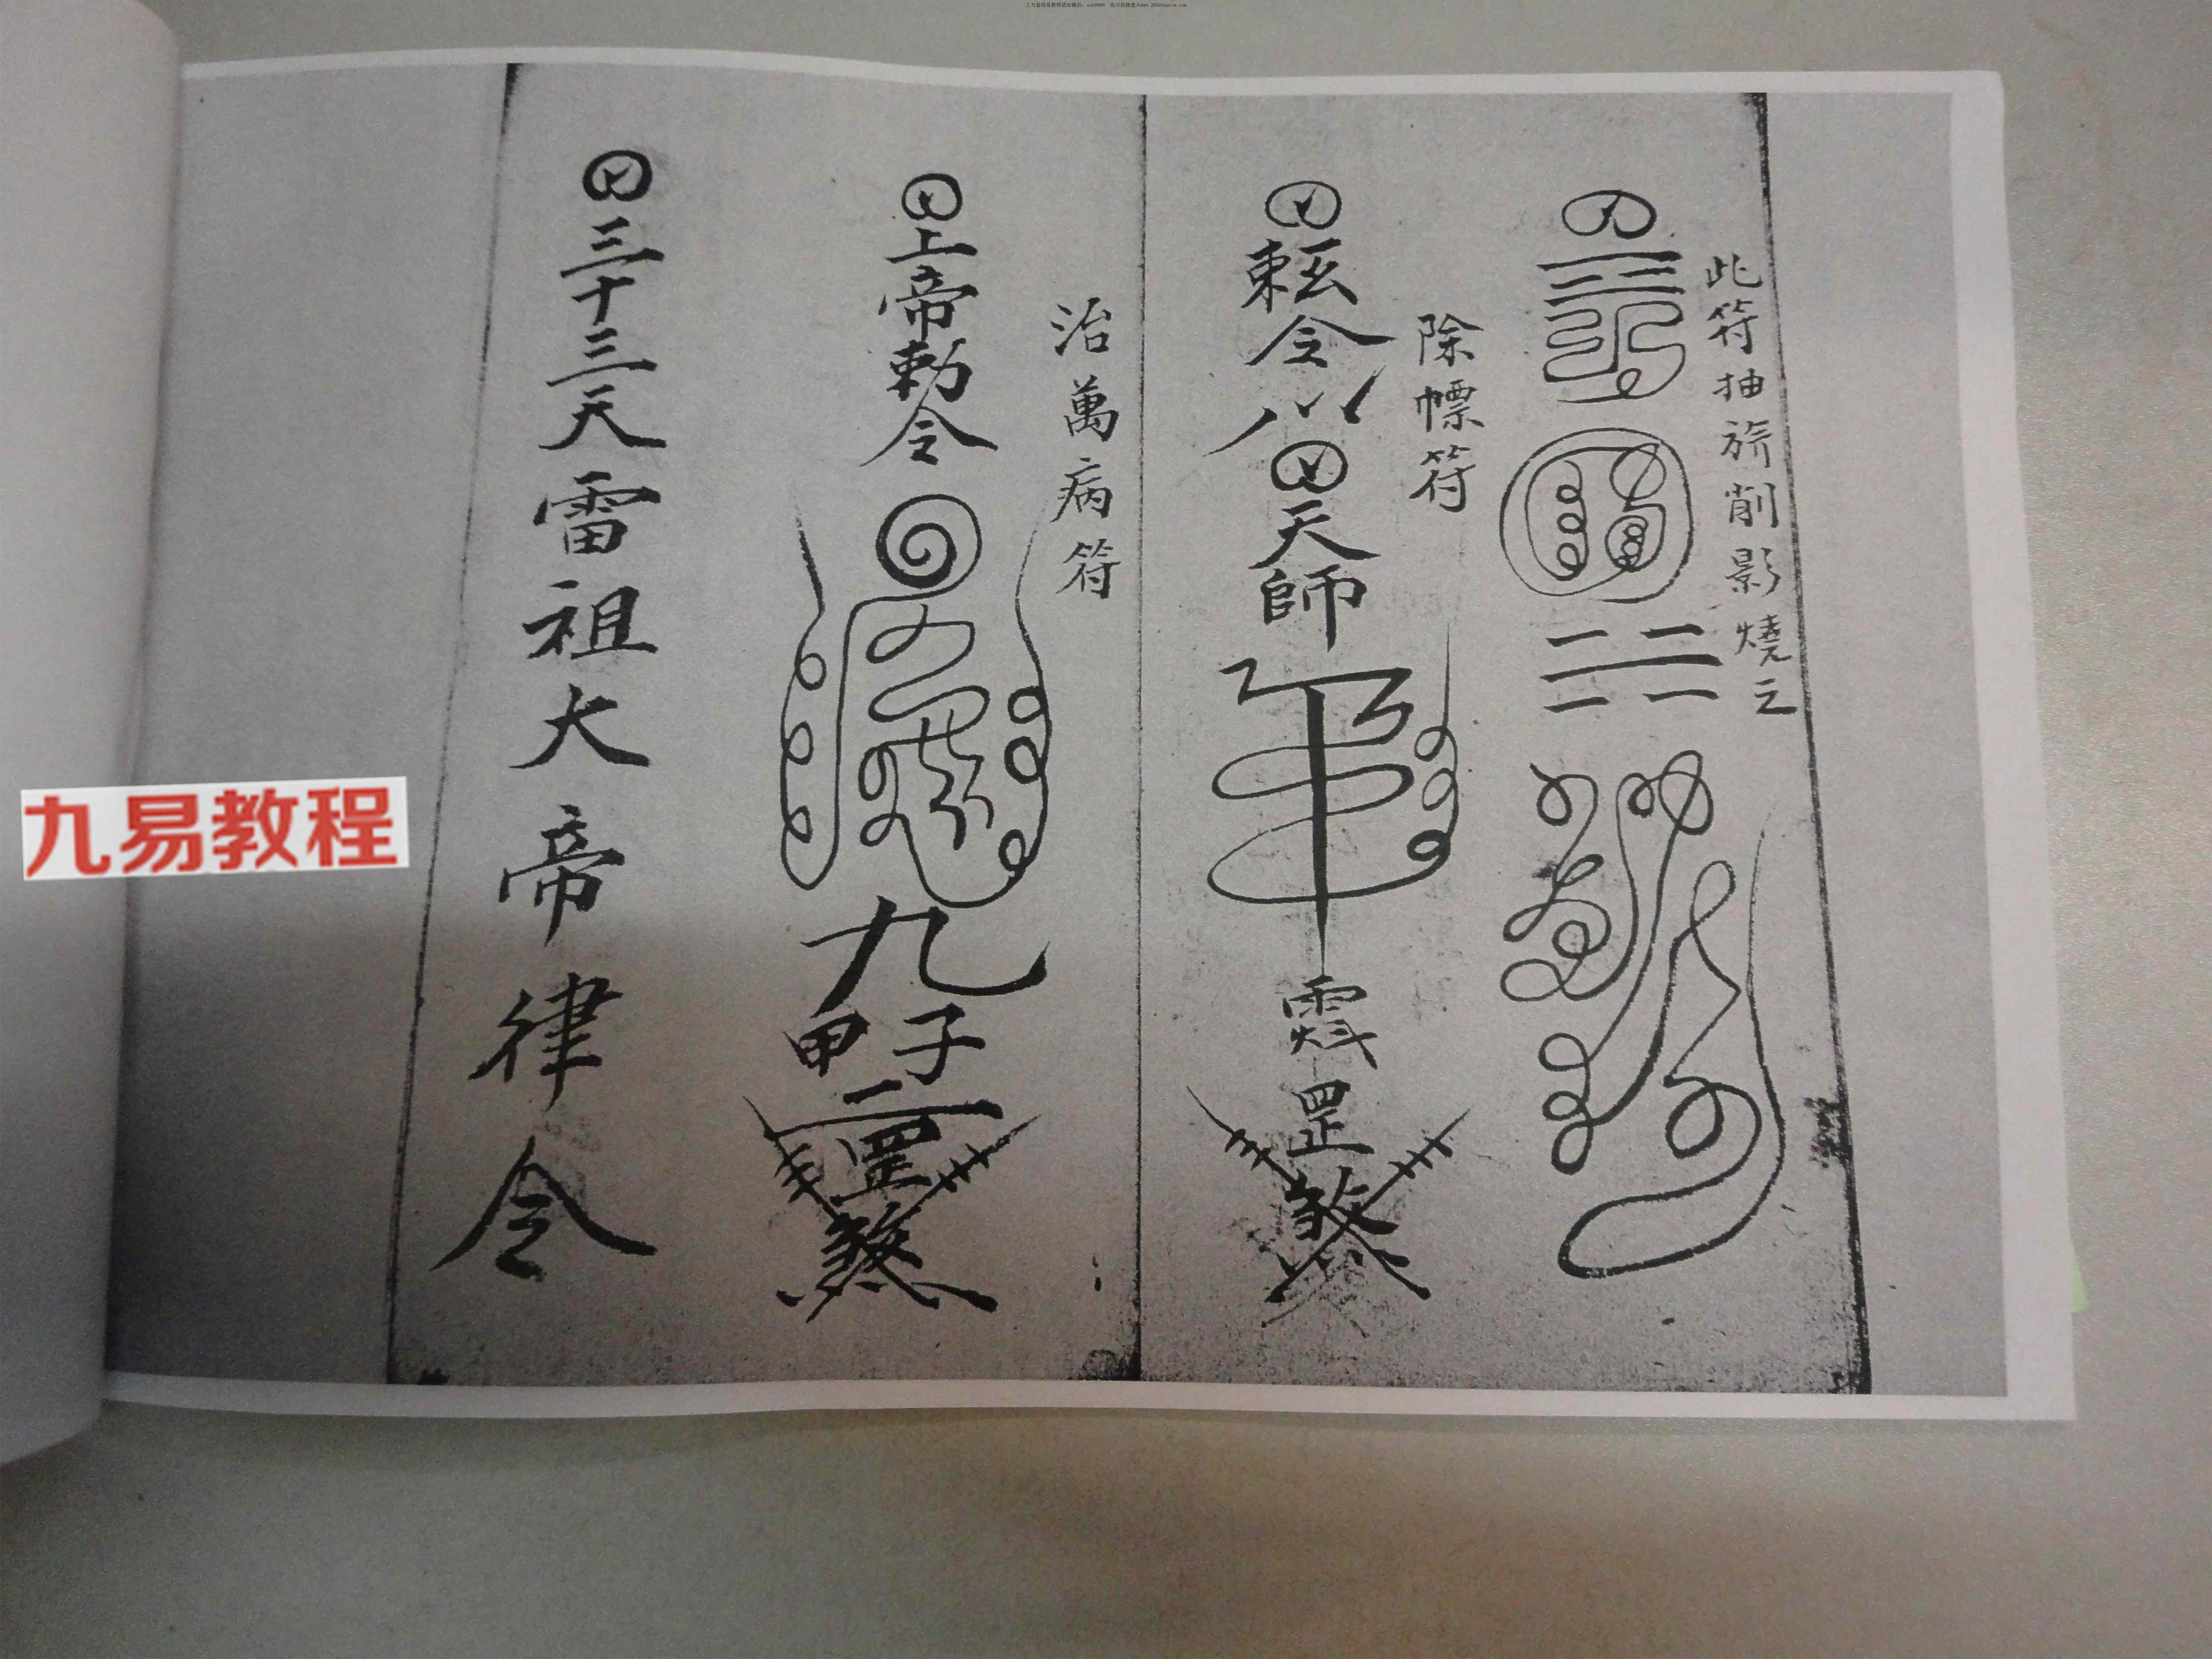 此符抽旂削影燒之
除幖符
敕令
天師
罡煞
治萬病符
上帝勅令
九
甲子
罡煞
三十三天雷祖大帝律令
九易教程